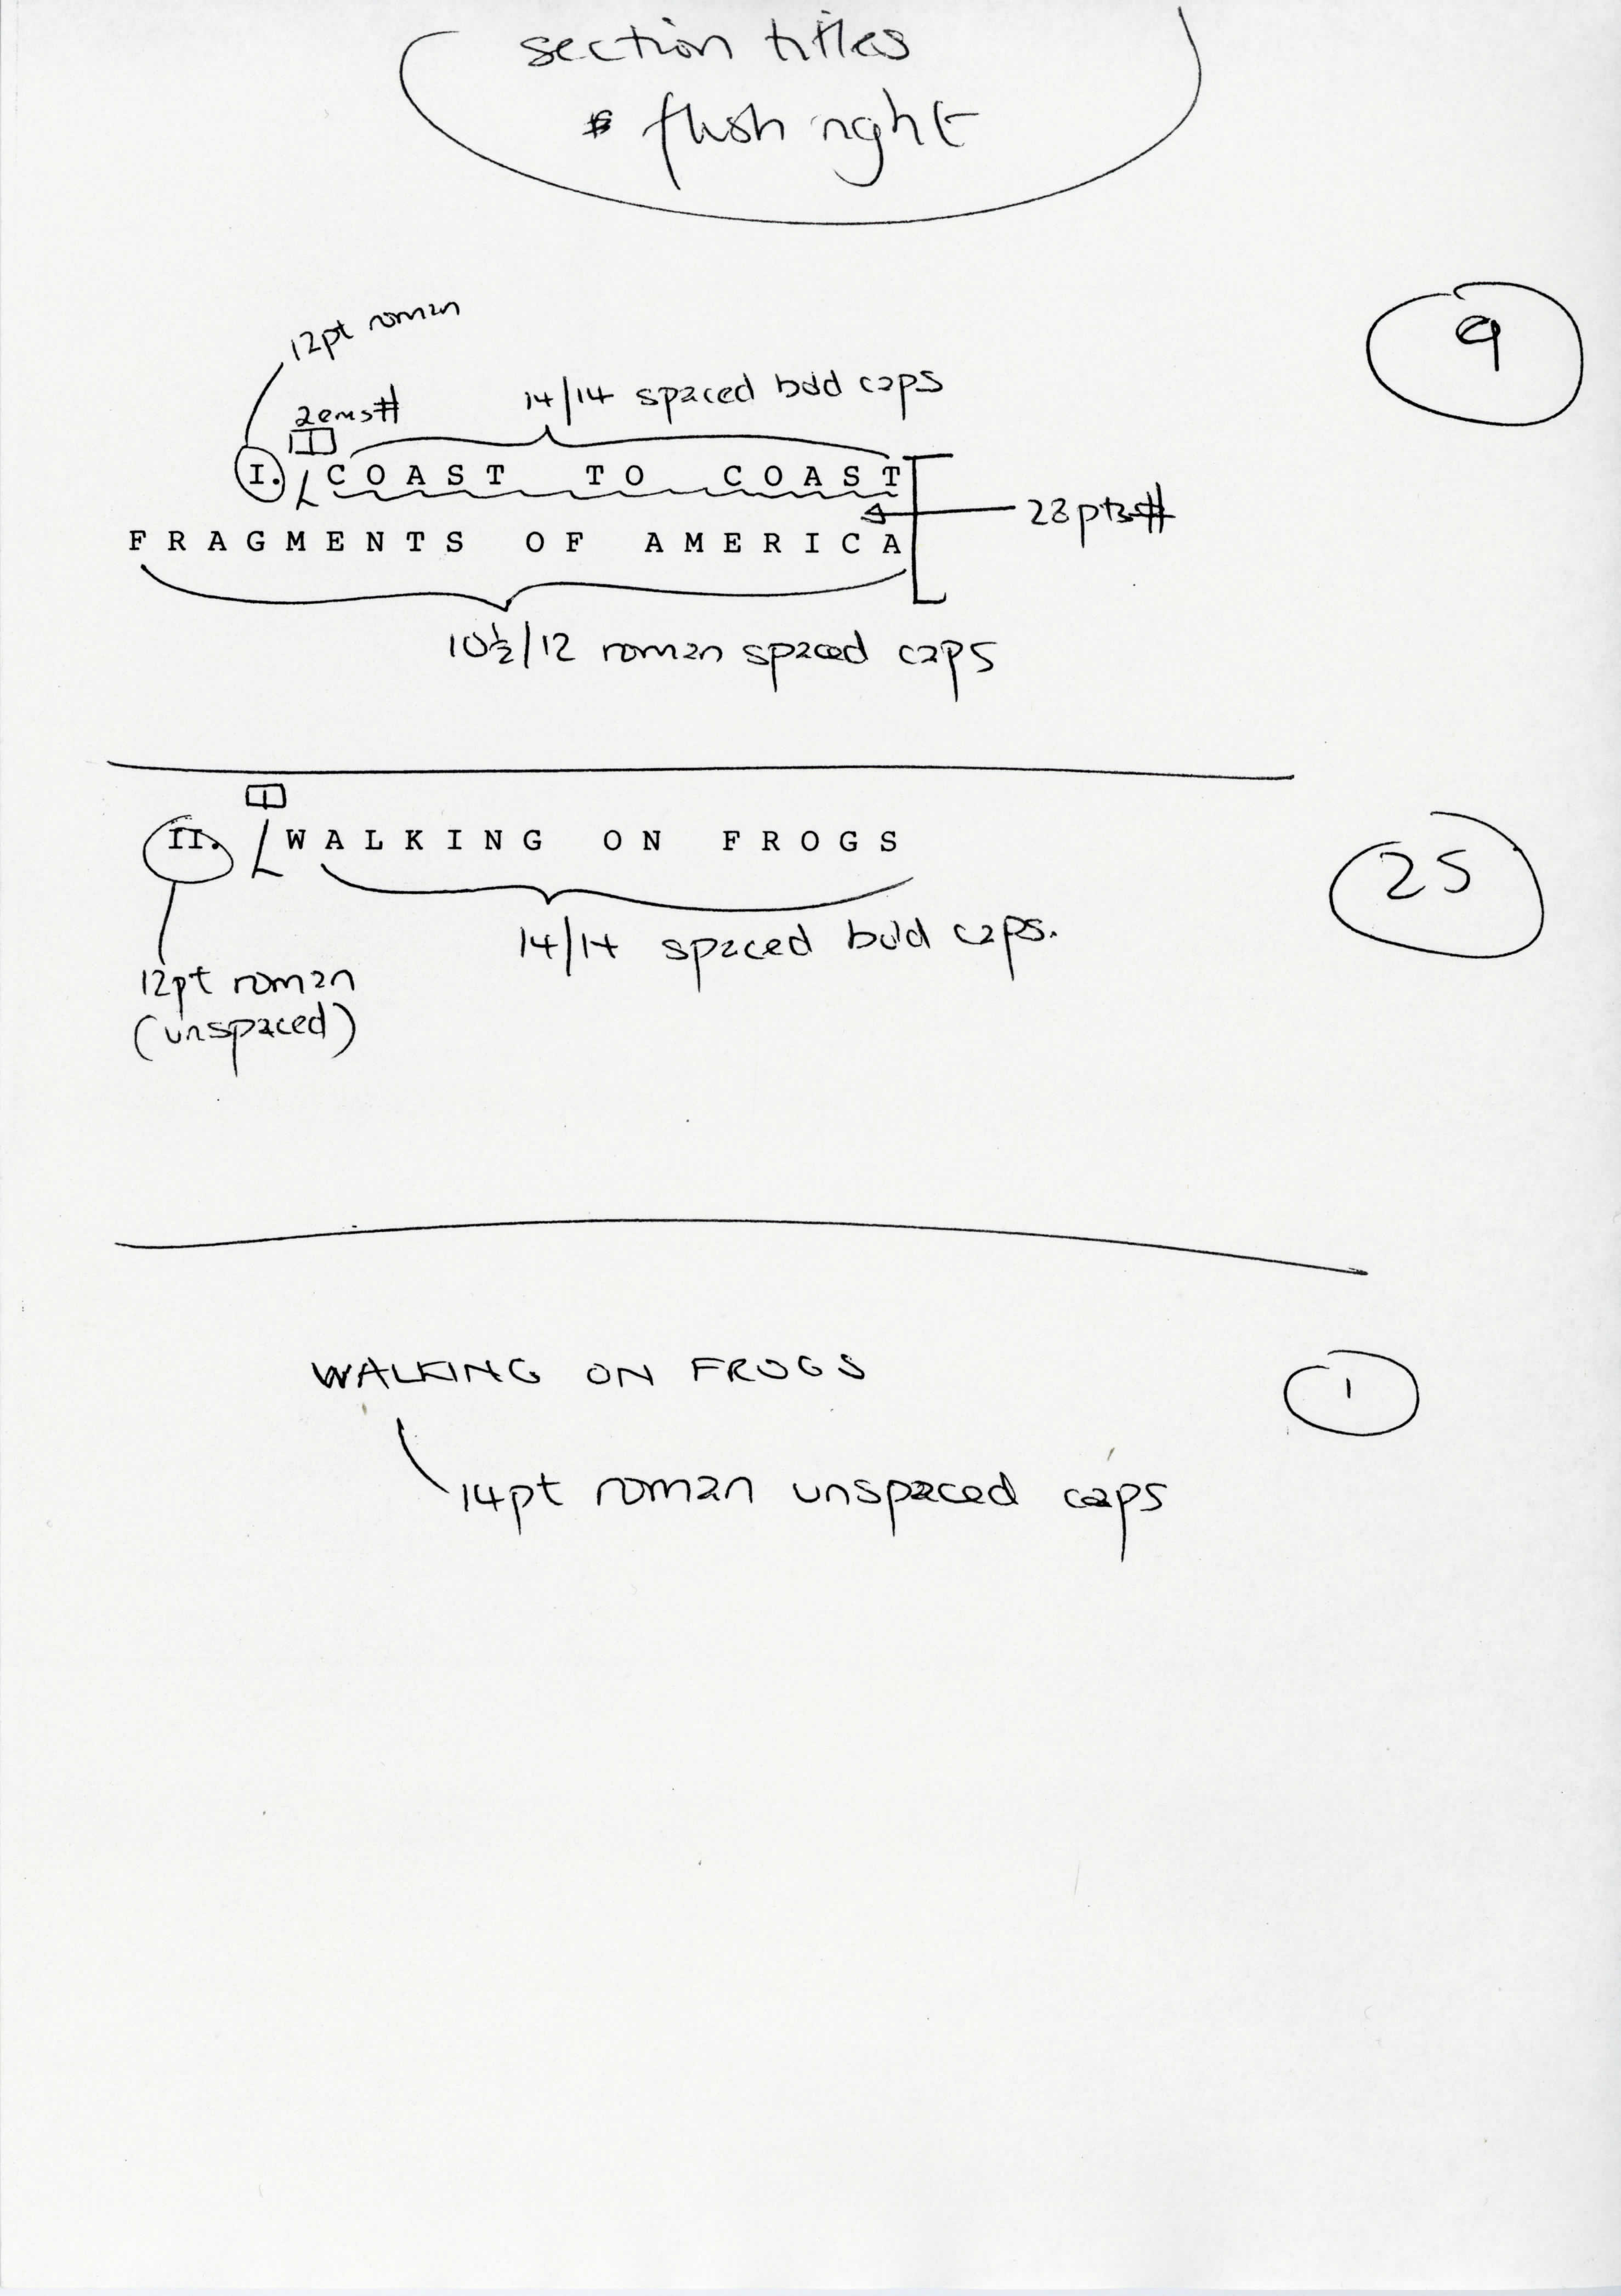 section titles
flush right
12pt roman
9
2ems#
14/14 spaced bold caps
I. COAST TO COAST
28pts#
FRAGMENTS OF AMERICA
10½/12 roman spaced caps
II. WALKING ON FROGS
25
14/14 spaced bold caps.
12pt roman
(unspaced)
WALKING ON FROGS
1
14pt roman unspaced caps